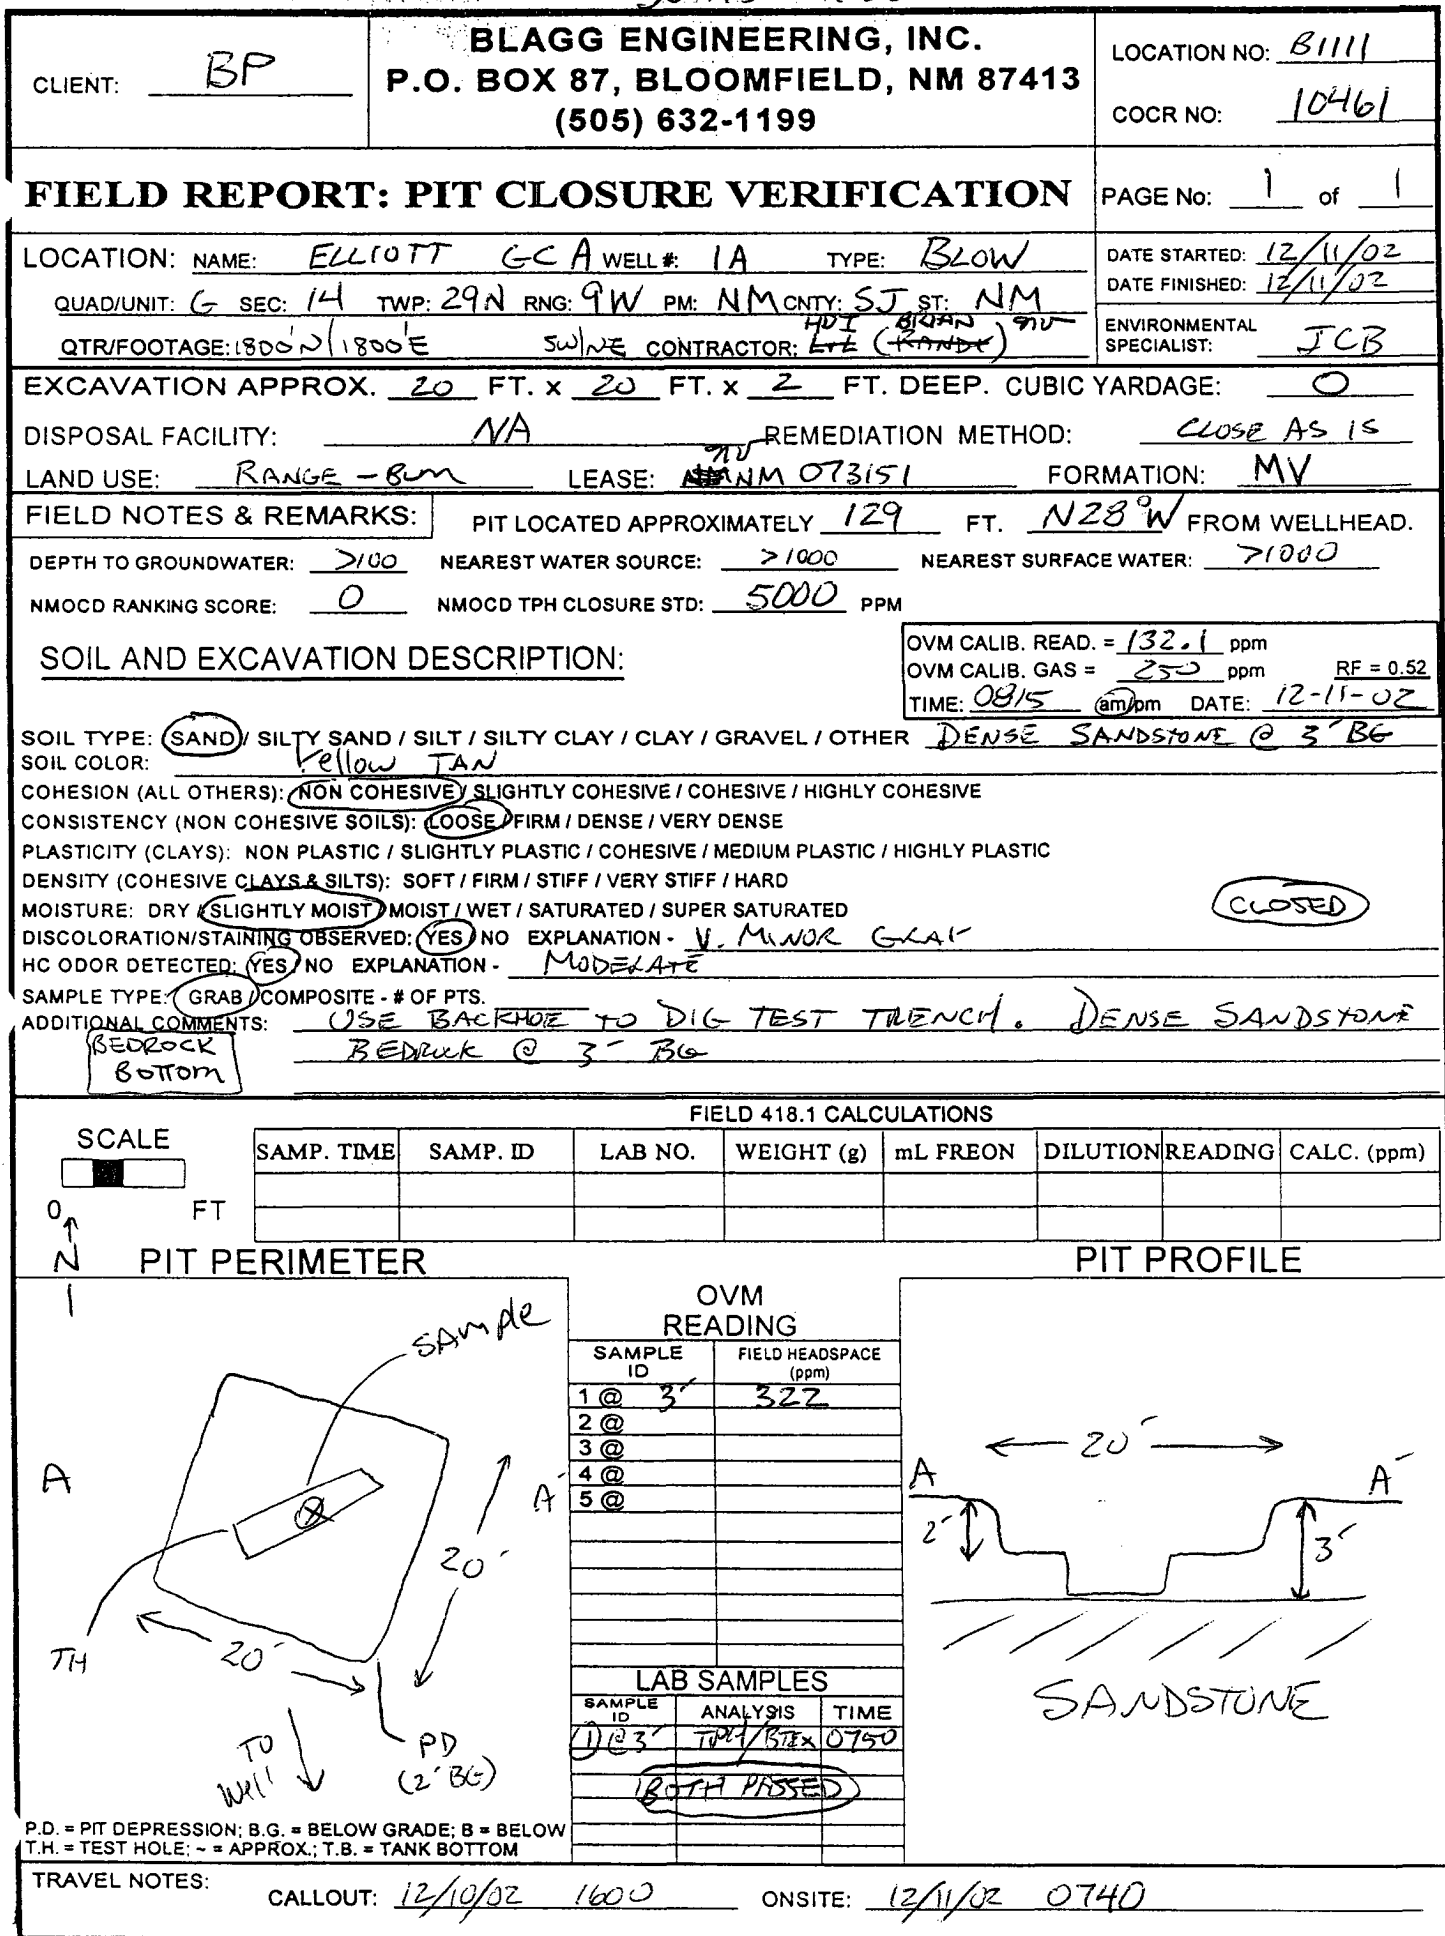 BLAGG ENGINEERING, INC.
P.O. BOX 87, BLOOMFIELD, NM 87413
(505) 632-1199
CLIENT: BP
LOCATION NO: B1111
COCR NO: 10461
FIELD REPORT: PIT CLOSURE VERIFICATION
PAGE No: 1 of 1
LOCATION: NAME: ELLIOTT GC A WELL #: 1A TYPE: BLOW
DATE STARTED: 12/11/02
DATE FINISHED: 12/11/02
QUAD/UNIT: G SEC: 14 TWP: 29N RNG: 9W PM: NM CNTY: SJ ST: NM
QTR/FOOTAGE: 1800'N/1800'E SW/NE CONTRACTOR: HDI (BRIAN)
ENVIRONMENTAL SPECIALIST: JCB
EXCAVATION APPROX. 20 FT. x 20 FT. x 2 FT. DEEP. CUBIC YARDAGE: 0
DISPOSAL FACILITY: NA REMEDIATION METHOD: CLOSE AS IS
LAND USE: RANGE - BLM LEASE: NM 073151 FORMATION: MV
FIELD NOTES & REMARKS: PIT LOCATED APPROXIMATELY 129 FT. N28°W FROM WELLHEAD.
DEPTH TO GROUNDWATER: >100 NEAREST WATER SOURCE: >1000 NEAREST SURFACE WATER: >1000
NMOCD RANKING SCORE: 0 NMOCD TPH CLOSURE STD: 5000 PPM
SOIL AND EXCAVATION DESCRIPTION:
OVM CALIB. READ. = 132.1 ppm
OVM CALIB. GAS = 250 ppm RF = 0.52
TIME: 0815 am/pm DATE: 12-11-02
SOIL TYPE: SAND / SILTY SAND / SILT / SILTY CLAY / CLAY / GRAVEL / OTHER DENSE SANDSTONE @ 3' BG
SOIL COLOR: Yellow TAN
COHESION (ALL OTHERS): NON COHESIVE / SLIGHTLY COHESIVE / COHESIVE / HIGHLY COHESIVE
CONSISTENCY (NON COHESIVE SOILS): LOOSE / FIRM / DENSE / VERY DENSE
PLASTICITY (CLAYS): NON PLASTIC / SLIGHTLY PLASTIC / COHESIVE / MEDIUM PLASTIC / HIGHLY PLASTIC
DENSITY (COHESIVE CLAYS & SILTS): SOFT / FIRM / STIFF / VERY STIFF / HARD
MOISTURE: DRY / SLIGHTLY MOIST / MOIST / WET / SATURATED / SUPER SATURATED
CLOSED
DISCOLORATION/STAINING OBSERVED: YES / NO EXPLANATION - V. MINOR GRAY
HC ODOR DETECTED: YES / NO EXPLANATION - MODERATE
SAMPLE TYPE: GRAB / COMPOSITE - # OF PTS.
ADDITIONAL COMMENTS: USE BACKHOE TO DIG TEST TRENCH. DENSE SANDSTONE
BEDROCK @ 3' BG
BEDROCK
BOTTOM
FIELD 418.1 CALCULATIONS
SCALE
0 FT
SAMP. TIME SAMP. ID LAB NO. WEIGHT (g) mL FREON DILUTION READING CALC. (ppm)
N
PIT PERIMETER
PIT PROFILE
OVM
READING
SAMPLE ID FIELD HEADSPACE (ppm)
1 @ 3' 322
2 @
3 @
4 @
5 @
SAMPLE
A A'
20'
20'
TH
TO
Well
PD
(2' BG)
20'
A A'
2' 3'
SANDSTONE
LAB SAMPLES
SAMPLE ID ANALYSIS TIME
(1)@3' TPH/BTEX 0750
BOTH PASSED
P.D. = PIT DEPRESSION; B.G. = BELOW GRADE; B = BELOW
T.H. = TEST HOLE; ~ = APPROX.; T.B. = TANK BOTTOM
TRAVEL NOTES: CALLOUT: 12/10/02 1600 ONSITE: 12/11/02 0740